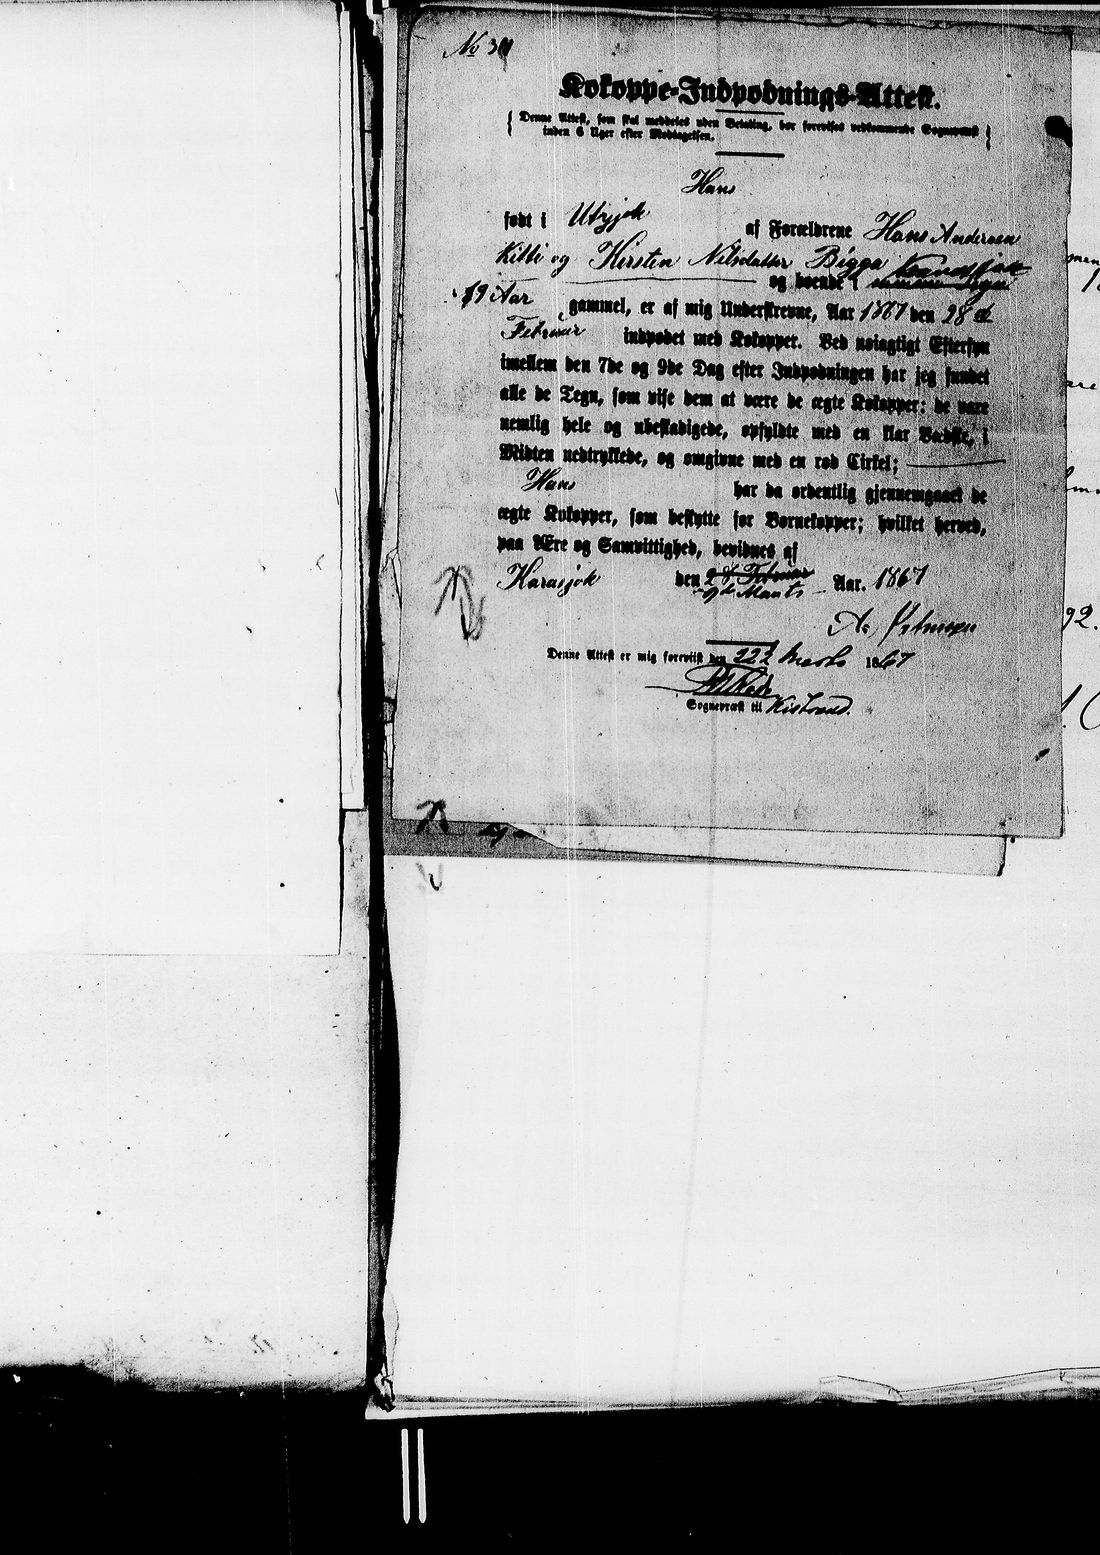 No 30
Kokoppe-Indpodnings-Attest.
Denne Attest, som skal meddeles uden Betaling, bør forevises vedkommende Sognepræst
inden 6 Uger efter Modtagelsen.
Hans
født i Utzjok af Forældrene Hans Andersen
Kitti og Kirsten Nilsdatter Bigga Karasjok
og boende i
19 Aar gammel, er af mig Underskrevne, Aar 1867 den 28de
Februar indpodet med Kokopper. Ved nøiagtigt Eftersyn
imellem den 7de og 9de Dag efter Indpodningen har jeg fundet
alle de Tegn, som vise dem at være de ægte Kokopper; de vare
nemlig hele og ubeskadigede, opfyldte med en klar Vædske, i
Midten nedtrykkede, og omgivne med en rød Cirkel;
Hans har da ordentlig gjennemgaaet de
ægte Kokopper, som beskytte for Børnekopper; hvilket herved,
paa Ære og Samvittighed, bevidnes af
Karasjok den 28 Februar Aar. 1867
9de Marts
Denne Attest er mig foreviist den 22 Marts 1867
Sognepræst til Kistrand.